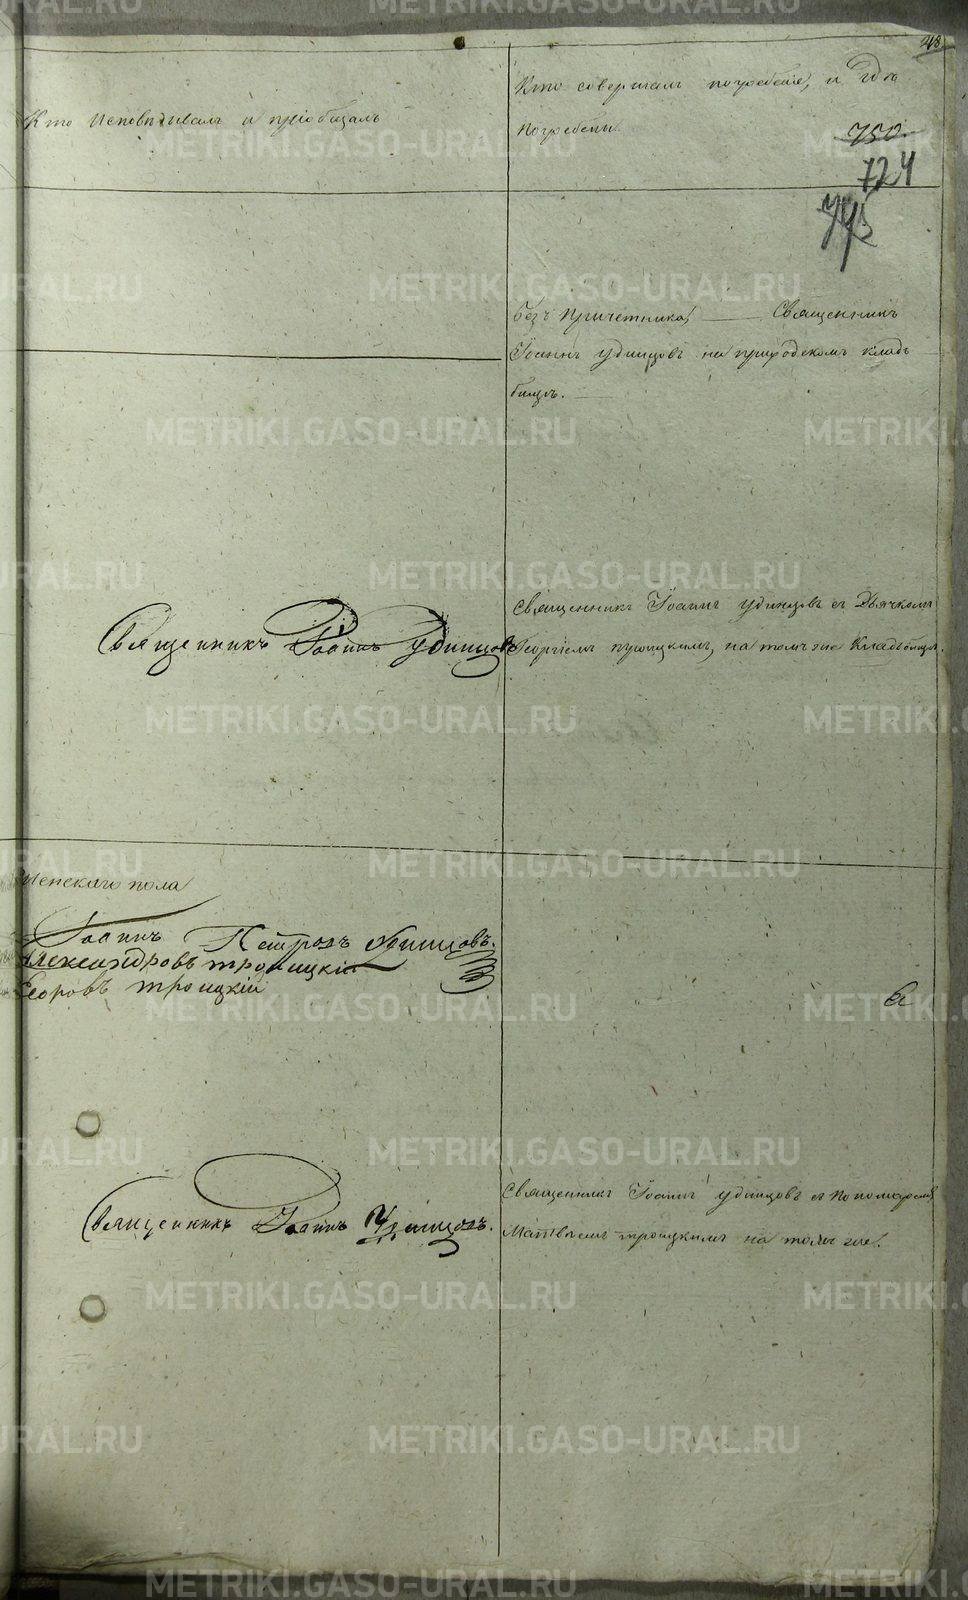 Кто исповѣдывалъ и приобщалъ
Кто совершалъ погребенie, и гдѣ
погребены.
750.
724
безъ причетника, — Священникъ
Іоаннъ Удинцовъ на приходскомъ клад-
бищѣ. —
Священникъ Іоаннъ Удинцовъ
Священникъ Іоаннъ Удинцовъ съ Дьячкомъ
Георгіемъ Троицкимъ, на томъ же Кладбищѣ.
Женскаго пола
Іоаннъ Петровъ Удинцовъ.
Александровъ Троицкій
Егоровъ Троицкій
Священникъ Іоаннъ Удинцовъ.
Священникъ Іоаннъ Удинцовъ съ Пономаремъ
Матвѣемъ Троицкимъ на томъ же.
METRIKI.GASO-URAL.RU